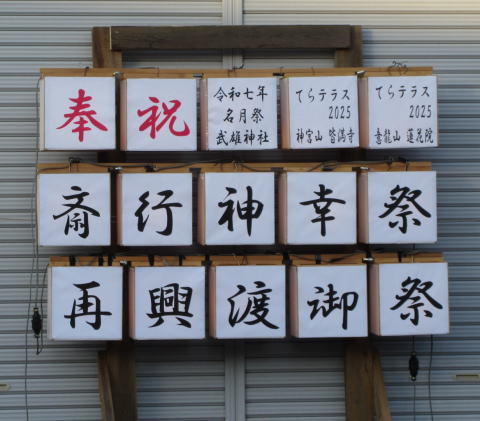 奉祝
令和七年
名月祭
武雄神社
てらテラス
2025
神宮山 皆満寺
てらテラス
2025
意龍山 蓮花院
斎行神幸祭
再興渡御祭